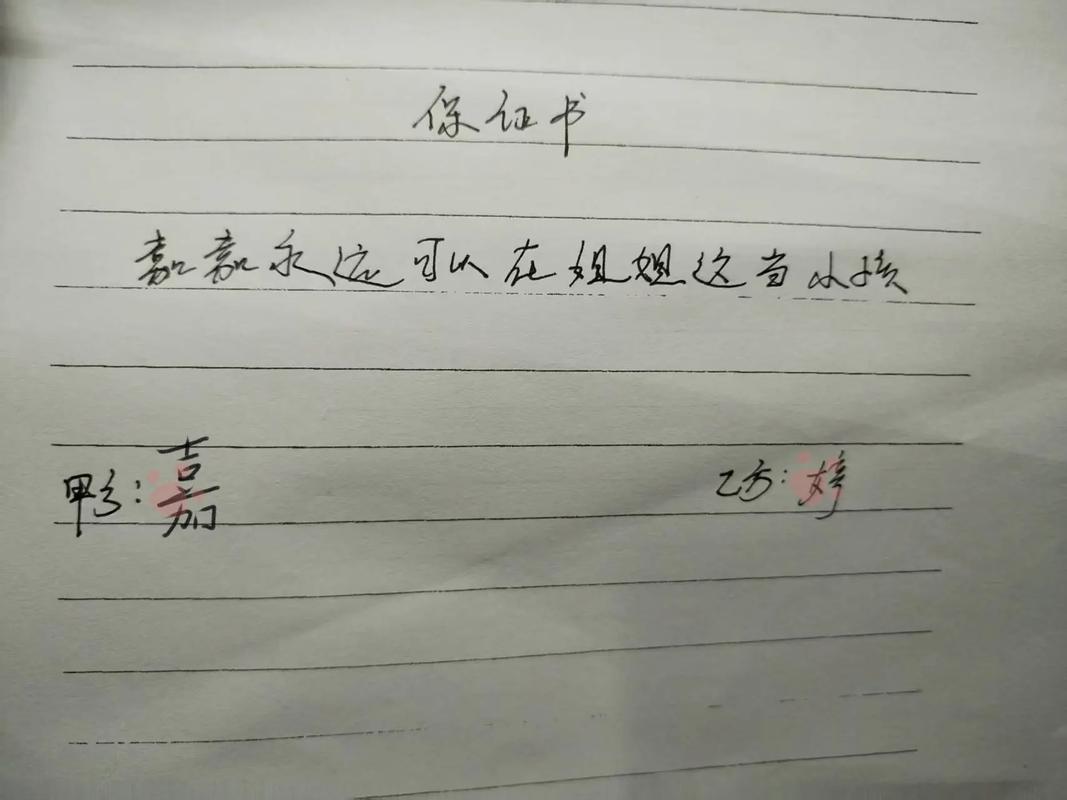 保证书
嘉嘉永远可以在姐姐这当小孩
甲方：嘉 乙方：婷